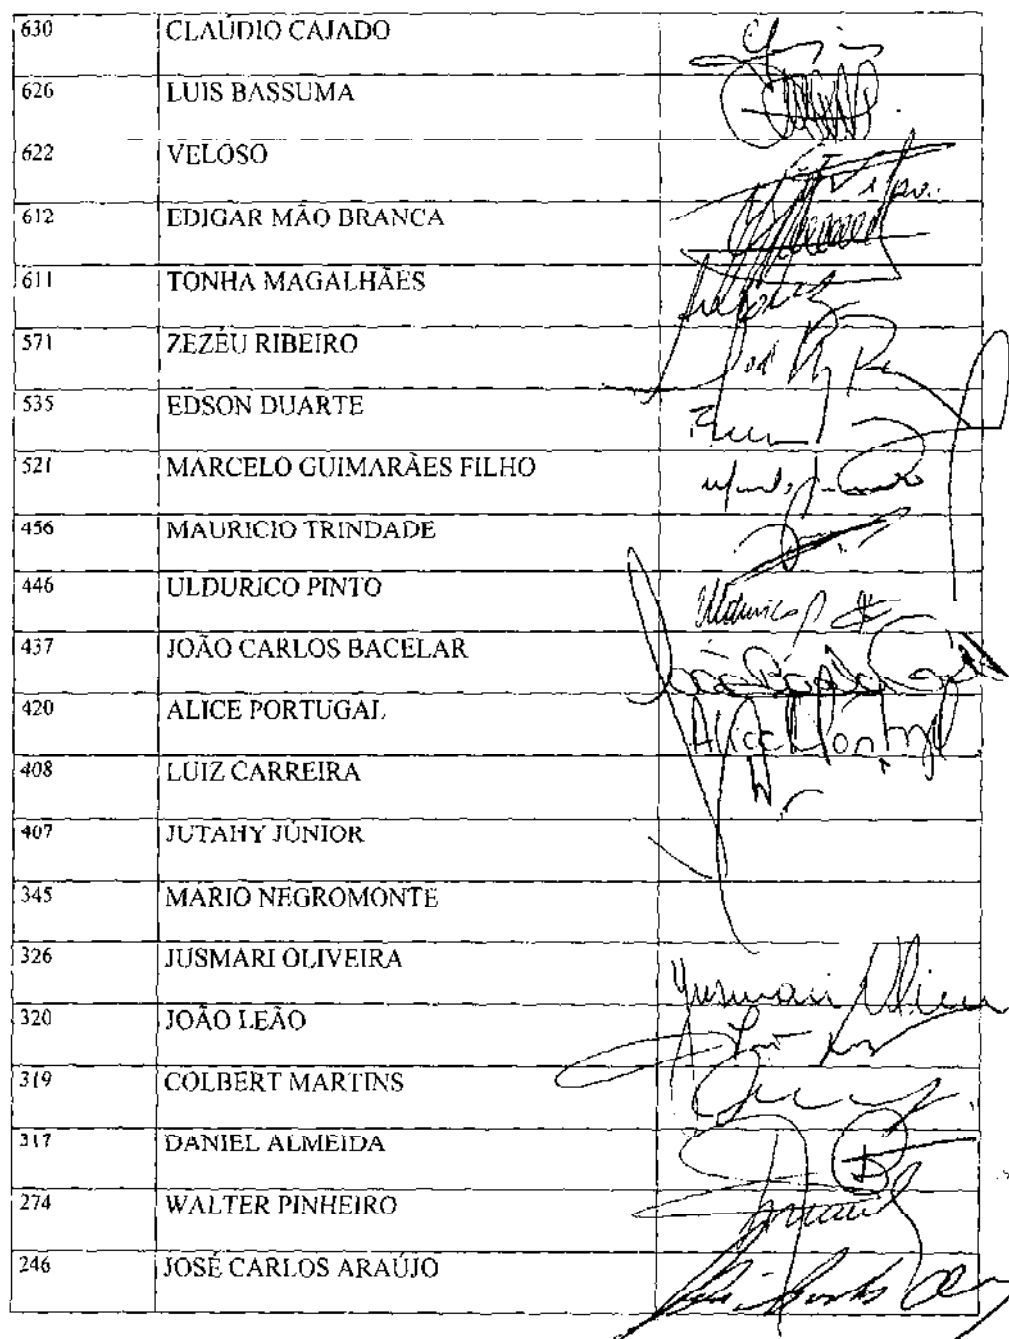 630 CLAÚDIO CAJADO
626 LUIS BASSUMA
622 VELOSO
612 EDIGAR MÃO BRANCA
611 TONHA MAGALHÃES
571 ZEZÉU RIBEIRO
535 EDSON DUARTE
521 MARCELO GUIMARÃES FILHO
456 MAURICIO TRINDADE
446 ULDURICO PINTO Uldurico P
437 JOÃO CARLOS BACELAR João Carlos
420 ALICE PORTUGAL Alice Portugal
408 LUIZ CARREIRA
407 JUTAHY JÚNIOR
345 MARIO NEGROMONTE
326 JUSMARI OLIVEIRA Jusmari Oliveira
320 JOÃO LEÃO
319 COLBERT MARTINS
317 DANIEL ALMEIDA
274 WALTER PINHEIRO
246 JOSÉ CARLOS ARAÚJO